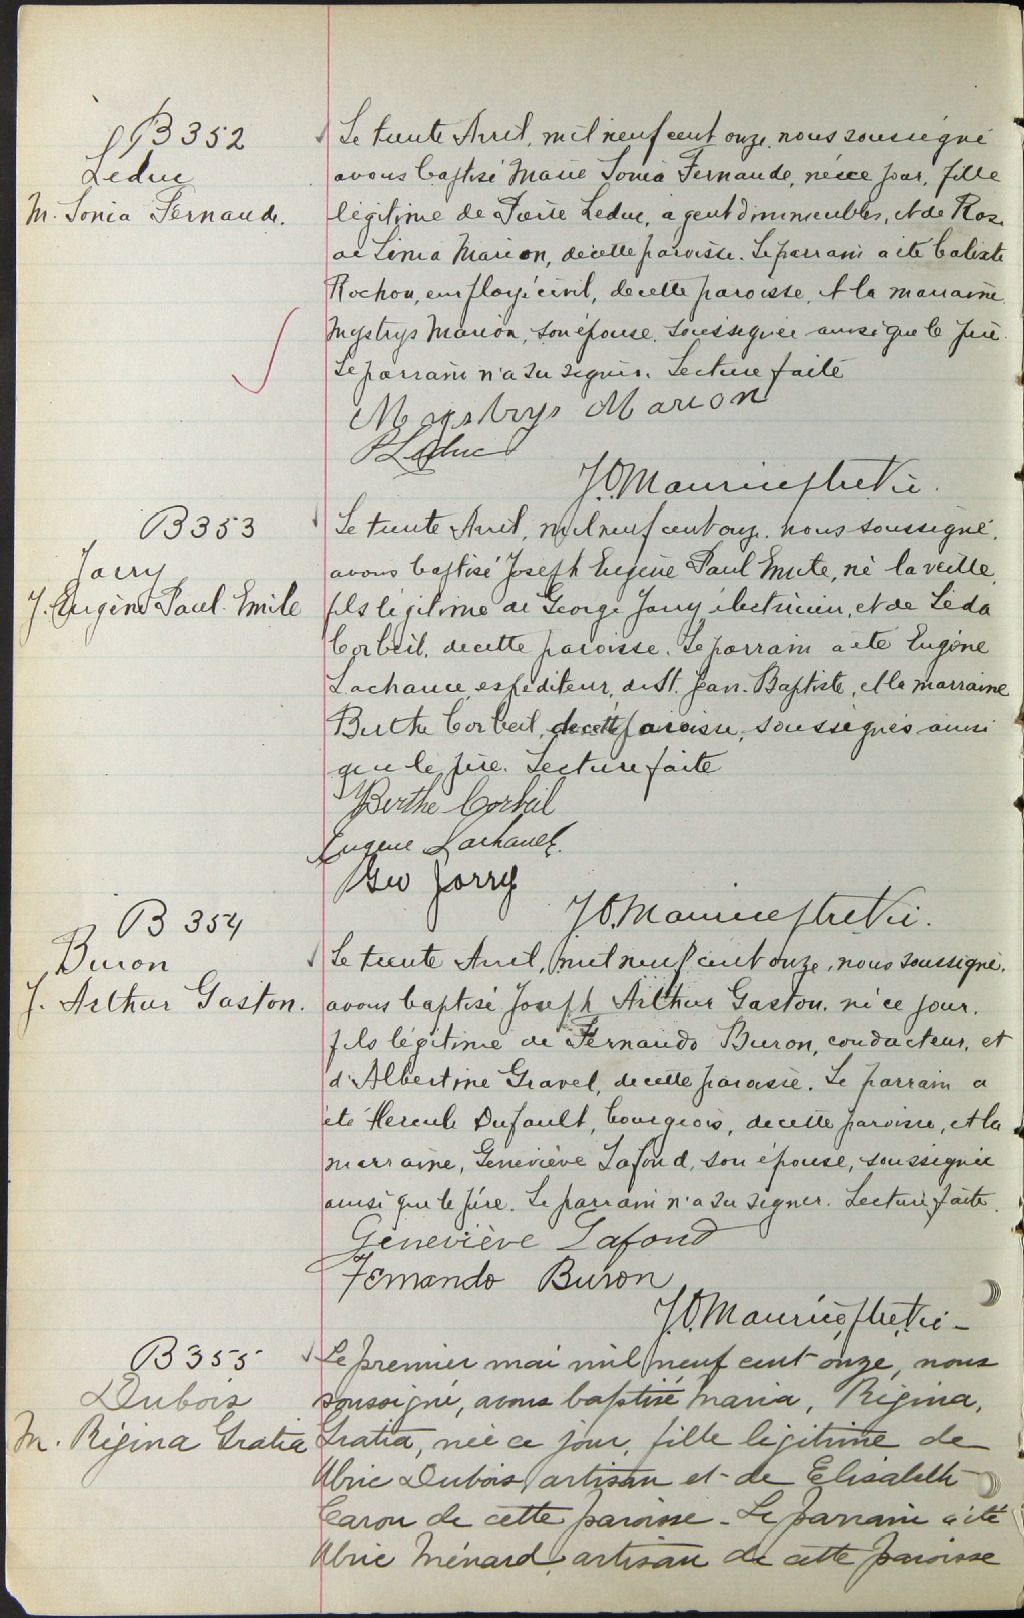 B 352
Leduc
M. Sonia Fernande.
Le trente Avril, mil neuf cent onze, nous soussigné
avons baptisé Marie Sonia Fernande, née ce jour, fille
légitime de Pierre Leduc, agent d'immeubles, et de Rose
de Lima Marion, de cette paroisse. Le parrain a été Calixte
Rochon, employé civil, de cette paroisse, et la marraine
Mystrys Marion, son épouse, soussignée ainsi que le père.
Le parrain n'a su signer. Lecture faite
Mystrys Marion
P Leduc
J.O. Maurice ptre Vic.
B 353
Jarry
J. Eugène Paul Emile
Le trente Avril, mil neuf cent onze, nous soussigné,
avons baptisé Joseph Eugène Paul Emile, né la veille,
fils légitime de George Jarry électricien, et de Léda
Corbeil, de cette paroisse. Le parrain a été Eugène
Lachance, expéditeur, de St. Jean-Baptiste, et la marraine
Berthe Corbeil, de cette paroisse, soussignés ainsi
que le père. Lecture faite
Berthe Corbeil
Eugene Lachance
Geo Jarry
J.O. Maurice ptre Vic.
B 354
Buron
J. Arthur Gaston.
Le trente Avril, mil neuf cent onze, nous soussigné,
avons baptisé Joseph Arthur Gaston, né ce jour,
fils légitime de Fernando Buron, conducteur, et
d'Albertine Gravel, de cette paroisse. Le parrain a
été Hercule Dufault, bourgeois, de cette paroisse, et la
marraine, Geneviève Lafond, son épouse, soussignée
ainsi que le père. Le parrain n'a su signer. Lecture faite.
Geneviève Lafond
Fernando Buron
J.O. Maurice, ptre, Vic -
B 355
Dubois
M. Régina Gratia
Le premier mai mil neuf cent onze, nous
soussigné, avons baptisé Maria, Régina,
Gratia, née ce jour, fille légitime de
Ulric Dubois, artisan et de Elisabeth
Caron de cette paroisse - Le parrain a été
Ulric Ménard, artisan de cette paroisse